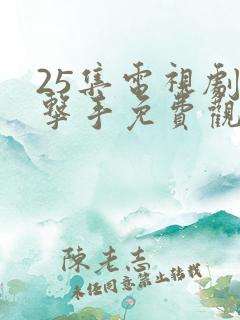 25集電視劇
擊手免費觀
陳老志
未經同意禁止轉載